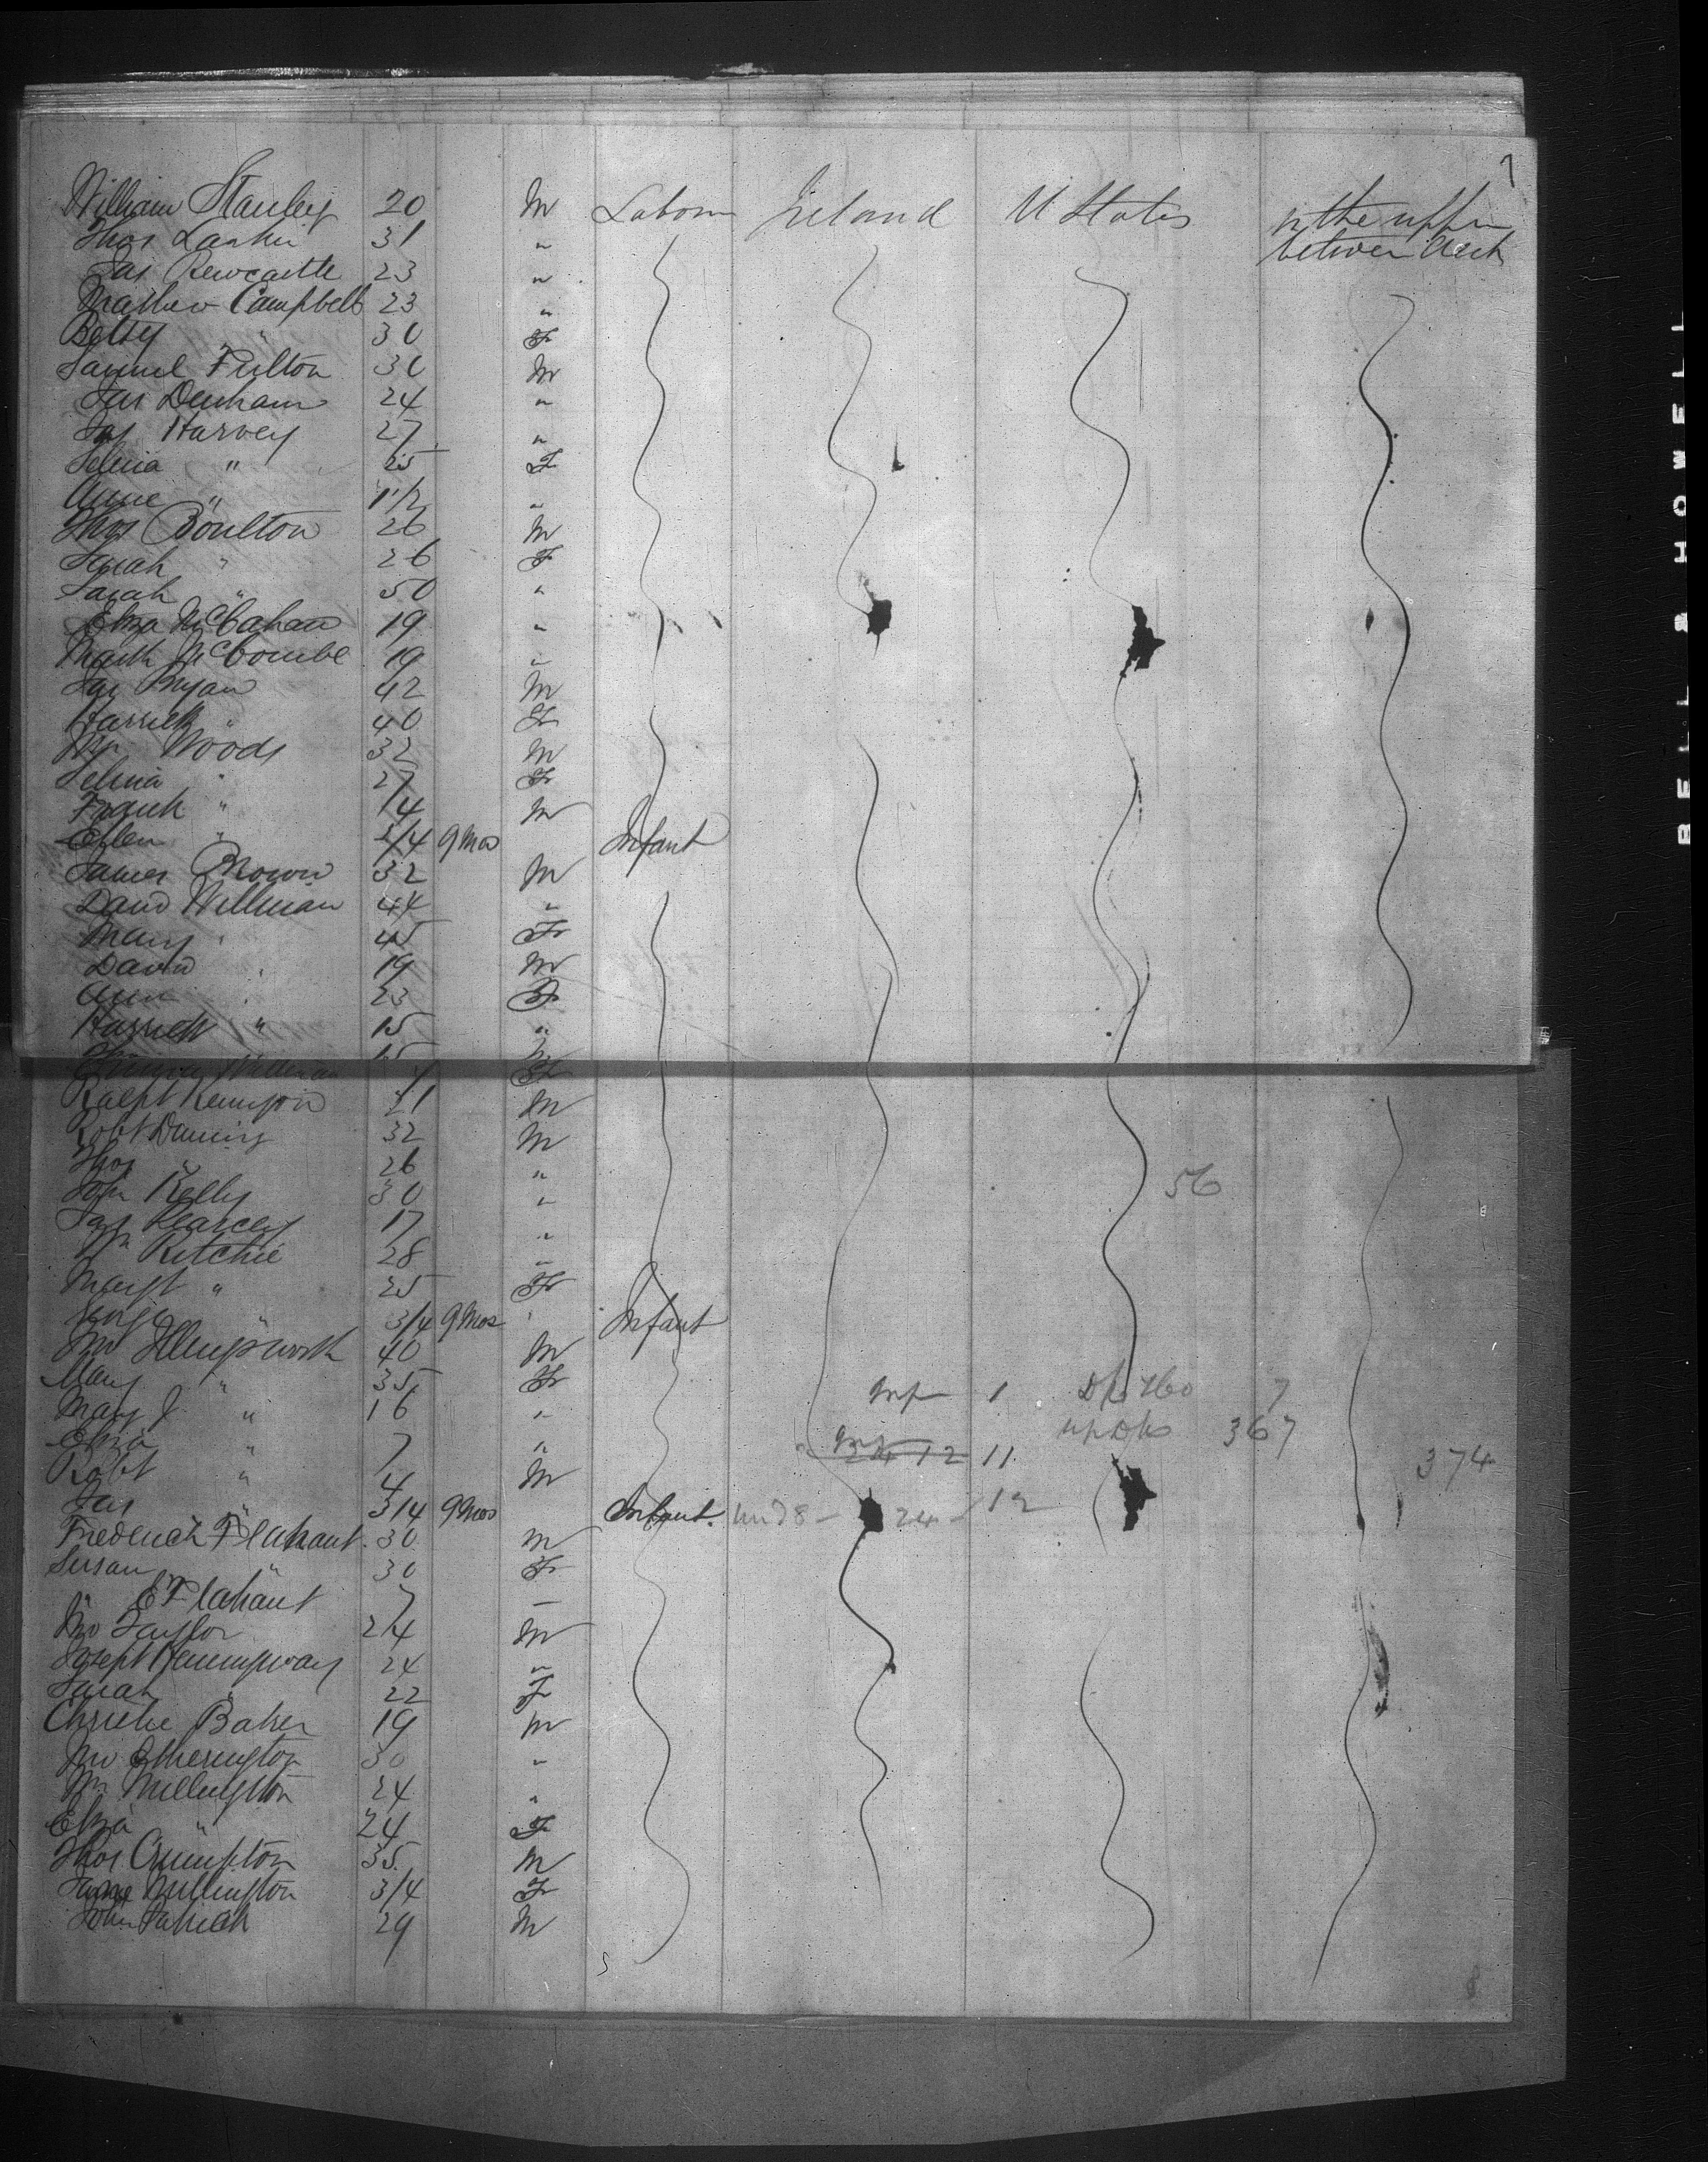 7
William Stanley 20 M Labour Ireland U States in the upper
Thos Laskie 31 " between deck
Jas Newcastle 23 "
Mathew Campbell 23 "
Betsy " 30 F
Samuel Fulton 30 M
Jas Denham 24 "
Jas Harvey 27 "
Selina " 25 F
Anne " 1 1/2 "
Thos Boulton 26 M
Sarah " 26 F
Sarah " 50 "
Eliza McCahan 19 "
McCombe 19 "
Jas Bryan 42 M
Harriett " 40 F
Wm Woods 32 M
Selina " 27 F
Frank " 14 M
Ellen " 3/4 9 Mos Infant
James Brown 32 M
David Willman 44 "
Mary " 45 F
David " 19 M
Ann " 23 F
Harriett " 15 "
Ralph Kempson 21 M
Robt 32 M
Thos " 26 "
John Kelly 30 " 56
Jas Pearcey 17 "
Wm Ritchie 28 "
Margt " 25 F
" 3/4 9 Mos " Infant
Jno Illingsworth 40 M
Mary " 35 F
1 7
Mary J " 16 "
367
Eliza " 7 "
12 11 374
Robt " 4 M
Jas " 3/4 9 Mos Infant. 24 12
Frederick Flahant 30 M
Susan " 30 F
" E Flahant 7 —
Jno Taylor 24 M
Joseph Hemmingway 24 "
Sarah " 22 F
Christie Baker 19 M
Jno Etherington 30 "
Wm Millington 24 "
Eliza " 24 F
Thos Crumpton 35 M
Jane Millington 3/4 F
John Patrick 29 M
8
BELL & HOWELL